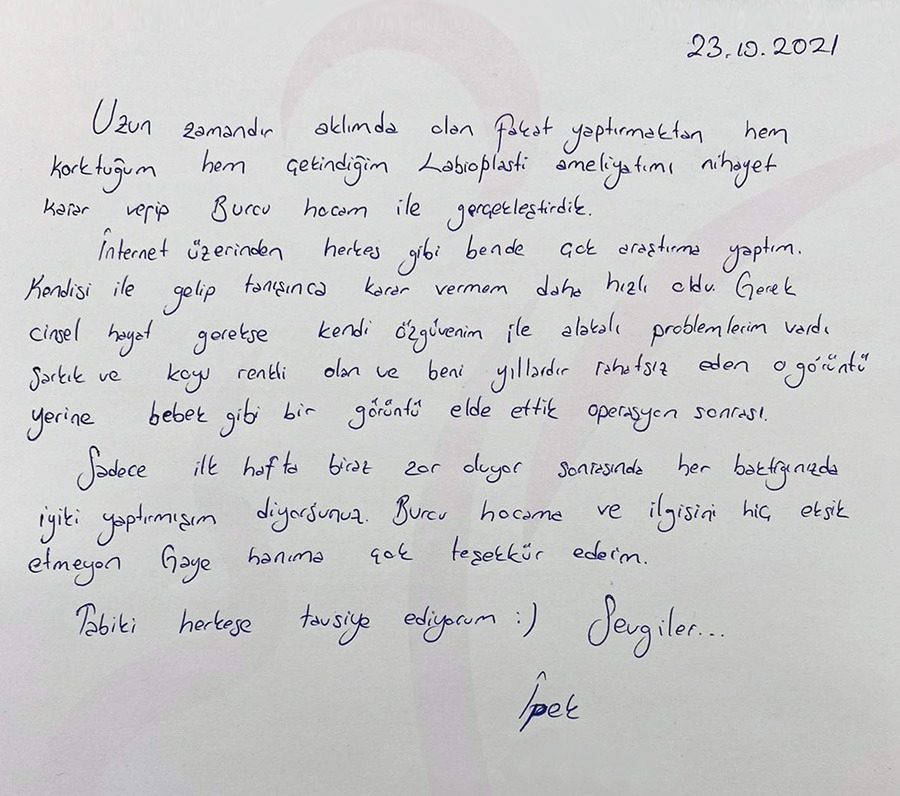 23.10.2021
Uzun zamandır aklımda olan fakat yaptırmaktan hem
korktuğum hem çekindiğim Labioplasti ameliyatımı nihayet
karar verip Burcu hocam ile gerçekleştirdik.
İnternet üzerinden herkes gibi bende çok araştırma yaptım.
Kendisi ile gelip tanışınca karar vermem daha hızlı oldu. Gerek
cinsel hayat gerekse kendi özgüvenim ile alakalı problemlerim vardı
Sarkık ve koyu renkli olan ve beni yıllardır rahatsız eden o görüntü
yerine bebek gibi bir görüntü elde ettik operasyon sonrası.
Sadece ilk hafta biraz zor oluyor sonrasında her baktığınızda
iyiki yaptırmışım diyorsunuz. Burcu hocama ve ilgisini hiç eksik
etmeyen Gaye hanıma çok teşekkür ederim.
Tabiki herkese tavsiye ediyorum :) Sevgiler...
İpek